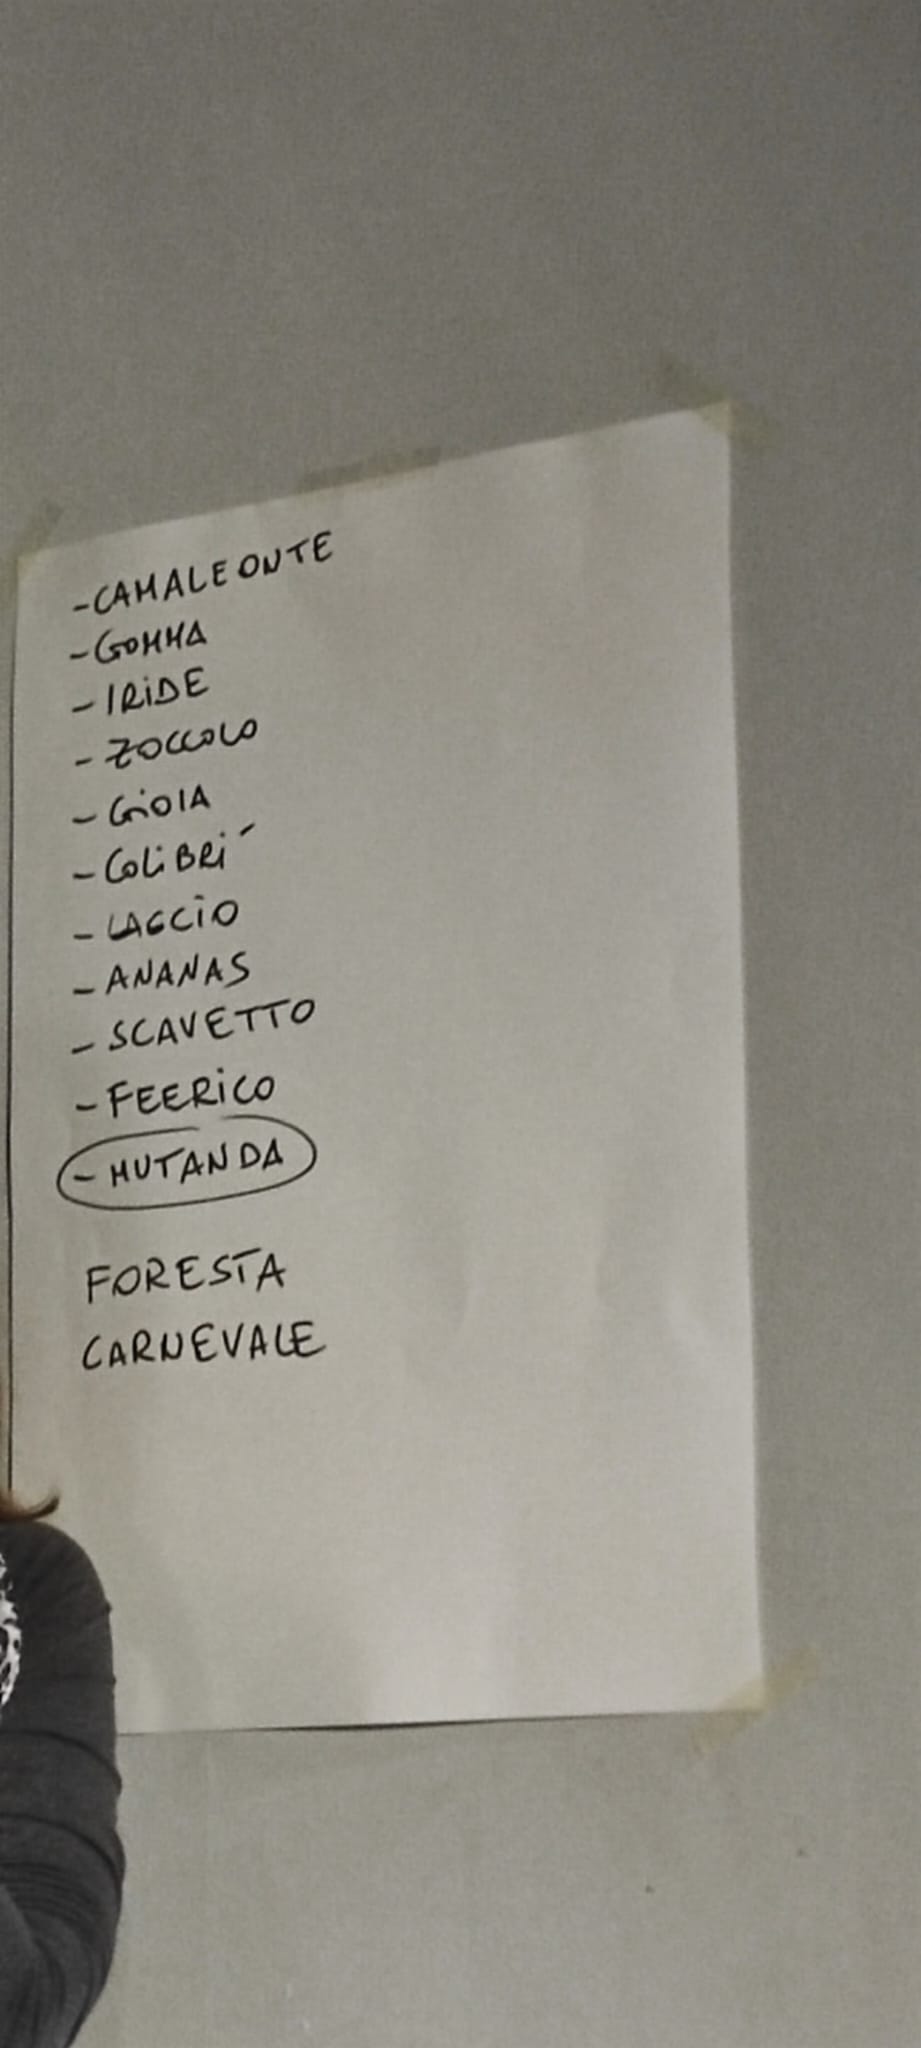 - CAMALEONTE
- GOMMA
- IRIDE
- ZOCCOLO
- GIOIA
- COLIBRÍ
- LACCIO
- ANANAS
- SCAVETTO
- FEERICO
- MUTANDA
FORESTA
CARNEVALE